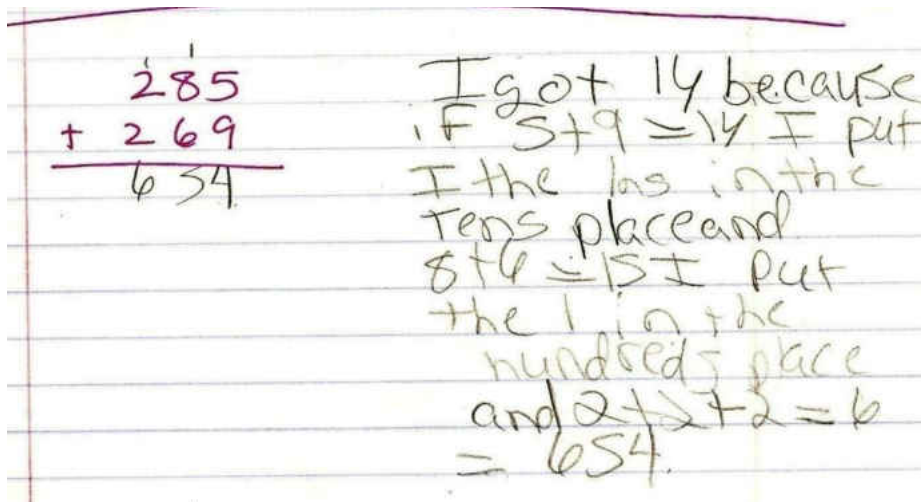 1 1
285
+ 269
654
I got 14 because
if 5+9=14 I put
I the in the
Tens place and
8+6=15 I put
the 1 in the
hundreds place
and 2+2+2=6
= 654.